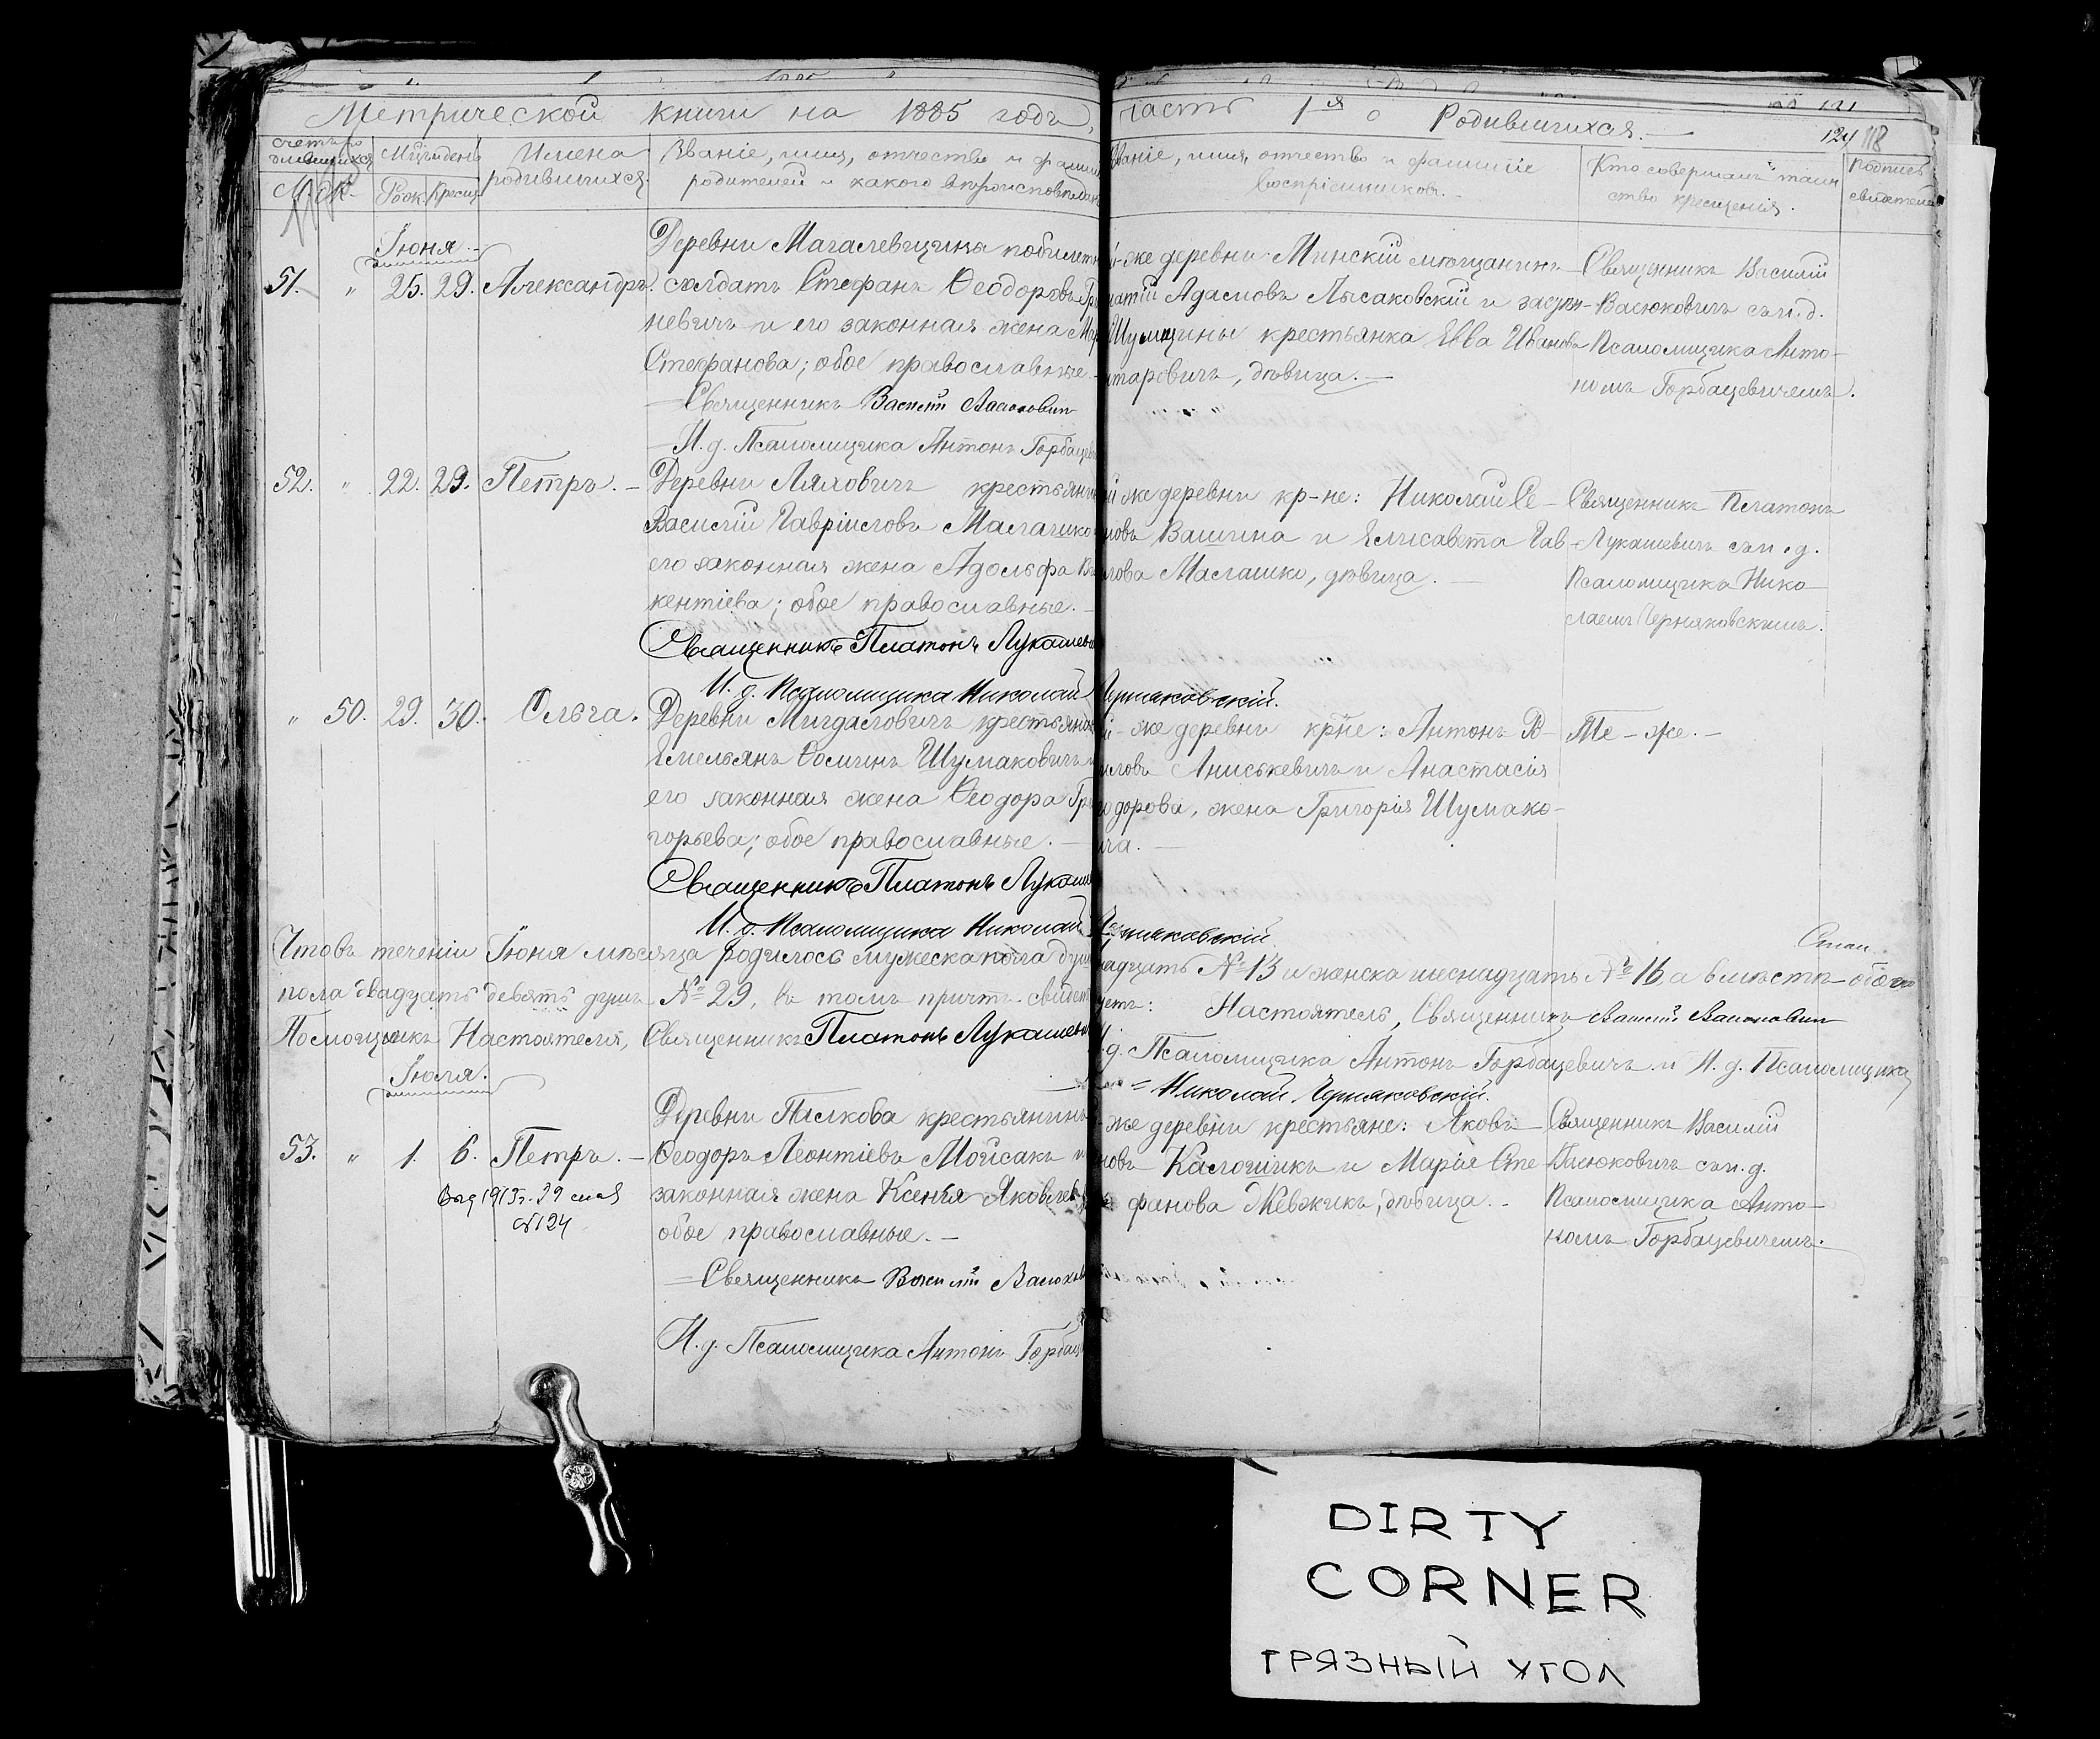 Метрической книги на 1885 годъ,
часть 1я о Родившихся.
124 118
Счетъ родившихся
М. Ж.
Мцъ и день
Рож. Крещ.
Имена
родившихся.
Званіе, имя, отчество и фамил
родителей и какого вѣроисповѣдан
Званіе, имя, отчество и фамиліе
воспріемниковъ.
Кто совершалъ таин
ство крещенія.
Подпись
свидетелей
Іюня.
51. " 25. 29. Александръ.
Деревни Магалевщины побилетн
солдатъ Стефанъ Ѳеодоровъ
невичъ и его законная жена Мар
Стефанова; обое православные.
Священникъ Василій Васюкович
И. д. Псаломщика Антонъ Горбацев
й-же деревни Минскій мѣщанинъ
Адамовъ Лысаковскій и
Шумщины крестьянка Евва Иванова
дѣвица.
Священникъ Василій
Васюковичъ съ и. д.
Псаломщика Анто-
номъ Горбацевичемъ.
52. " 22. 29. Петръ.
Деревни Ляховичъ крестьянин
Василій Гавріиловъ Малашко
его законная жена Адольфа Ви
кентіева; обое православные.
Священникъ Платонъ Лукашеви
И. д. Псаломщика Николай Черняковскій.
й же деревни кр-не: Николай Се-
новъ Вашина и Елисавета Гав-
лова Малашко, дѣвица.
Священникъ Платонъ
Лукашевичъ съ и. д.
Псаломщика Нико-
лаемъ Черняковскимъ.
" 50. 29. 30. Ольга.
Деревни Мигдаловичъ крестьянин
Емельянъ Ѳоминъ Шумаковичъ и
его законная жена Ѳеодора Гри
горьева; обое православные.
Священникъ Платонъ Лукаше
И. д. Псаломщика Николай Черняковскій
й-же деревни крне: Антонъ В-
иловъ Аниськевичъ и Анастасія
одорова, жена Григорія Шумако-
ича.
Тѣ-же.
Что въ теченіи Іюня мѣсяца родилось мужеска пола душ
надцать № 13 и женска шеснадцать № 16, а вмѣстѣ обоего
пола двадцать девять душъ № 29, въ томъ причтъ свидет
уетъ: Настоятель, Священникъ Василій Васюкович
Помощникъ Настоятеля, Священникъ Платонъ Лукашеви
И. д. Псаломщика Антонъ Горбацевичъ и И. д. Псаломщика
Николай Черняковскій.
Іюля.
53. " 1. 6. Петръ.
Выд 1913г. 29 мая
№ 124
Деревни Палкова крестьянинъ
Ѳеодоръ Леонтіевъ Мойсакъ и
законная жена Ксенія Яковлев
обое православные.
Священникъ Василій Васюков
И. д. Псаломщика Антонъ Горбац
же деревни крестьяне: Яковъ
новъ Калошикъ и Марія Сте-
фанова Жевжикъ, дѣвица.
Священникъ Василій
Васюковичъ съ и. д.
Псаломщика Анто-
номъ Горбацевичемъ.
DIRTY
CORNER
ГРЯЗНЫЙ УГОЛ